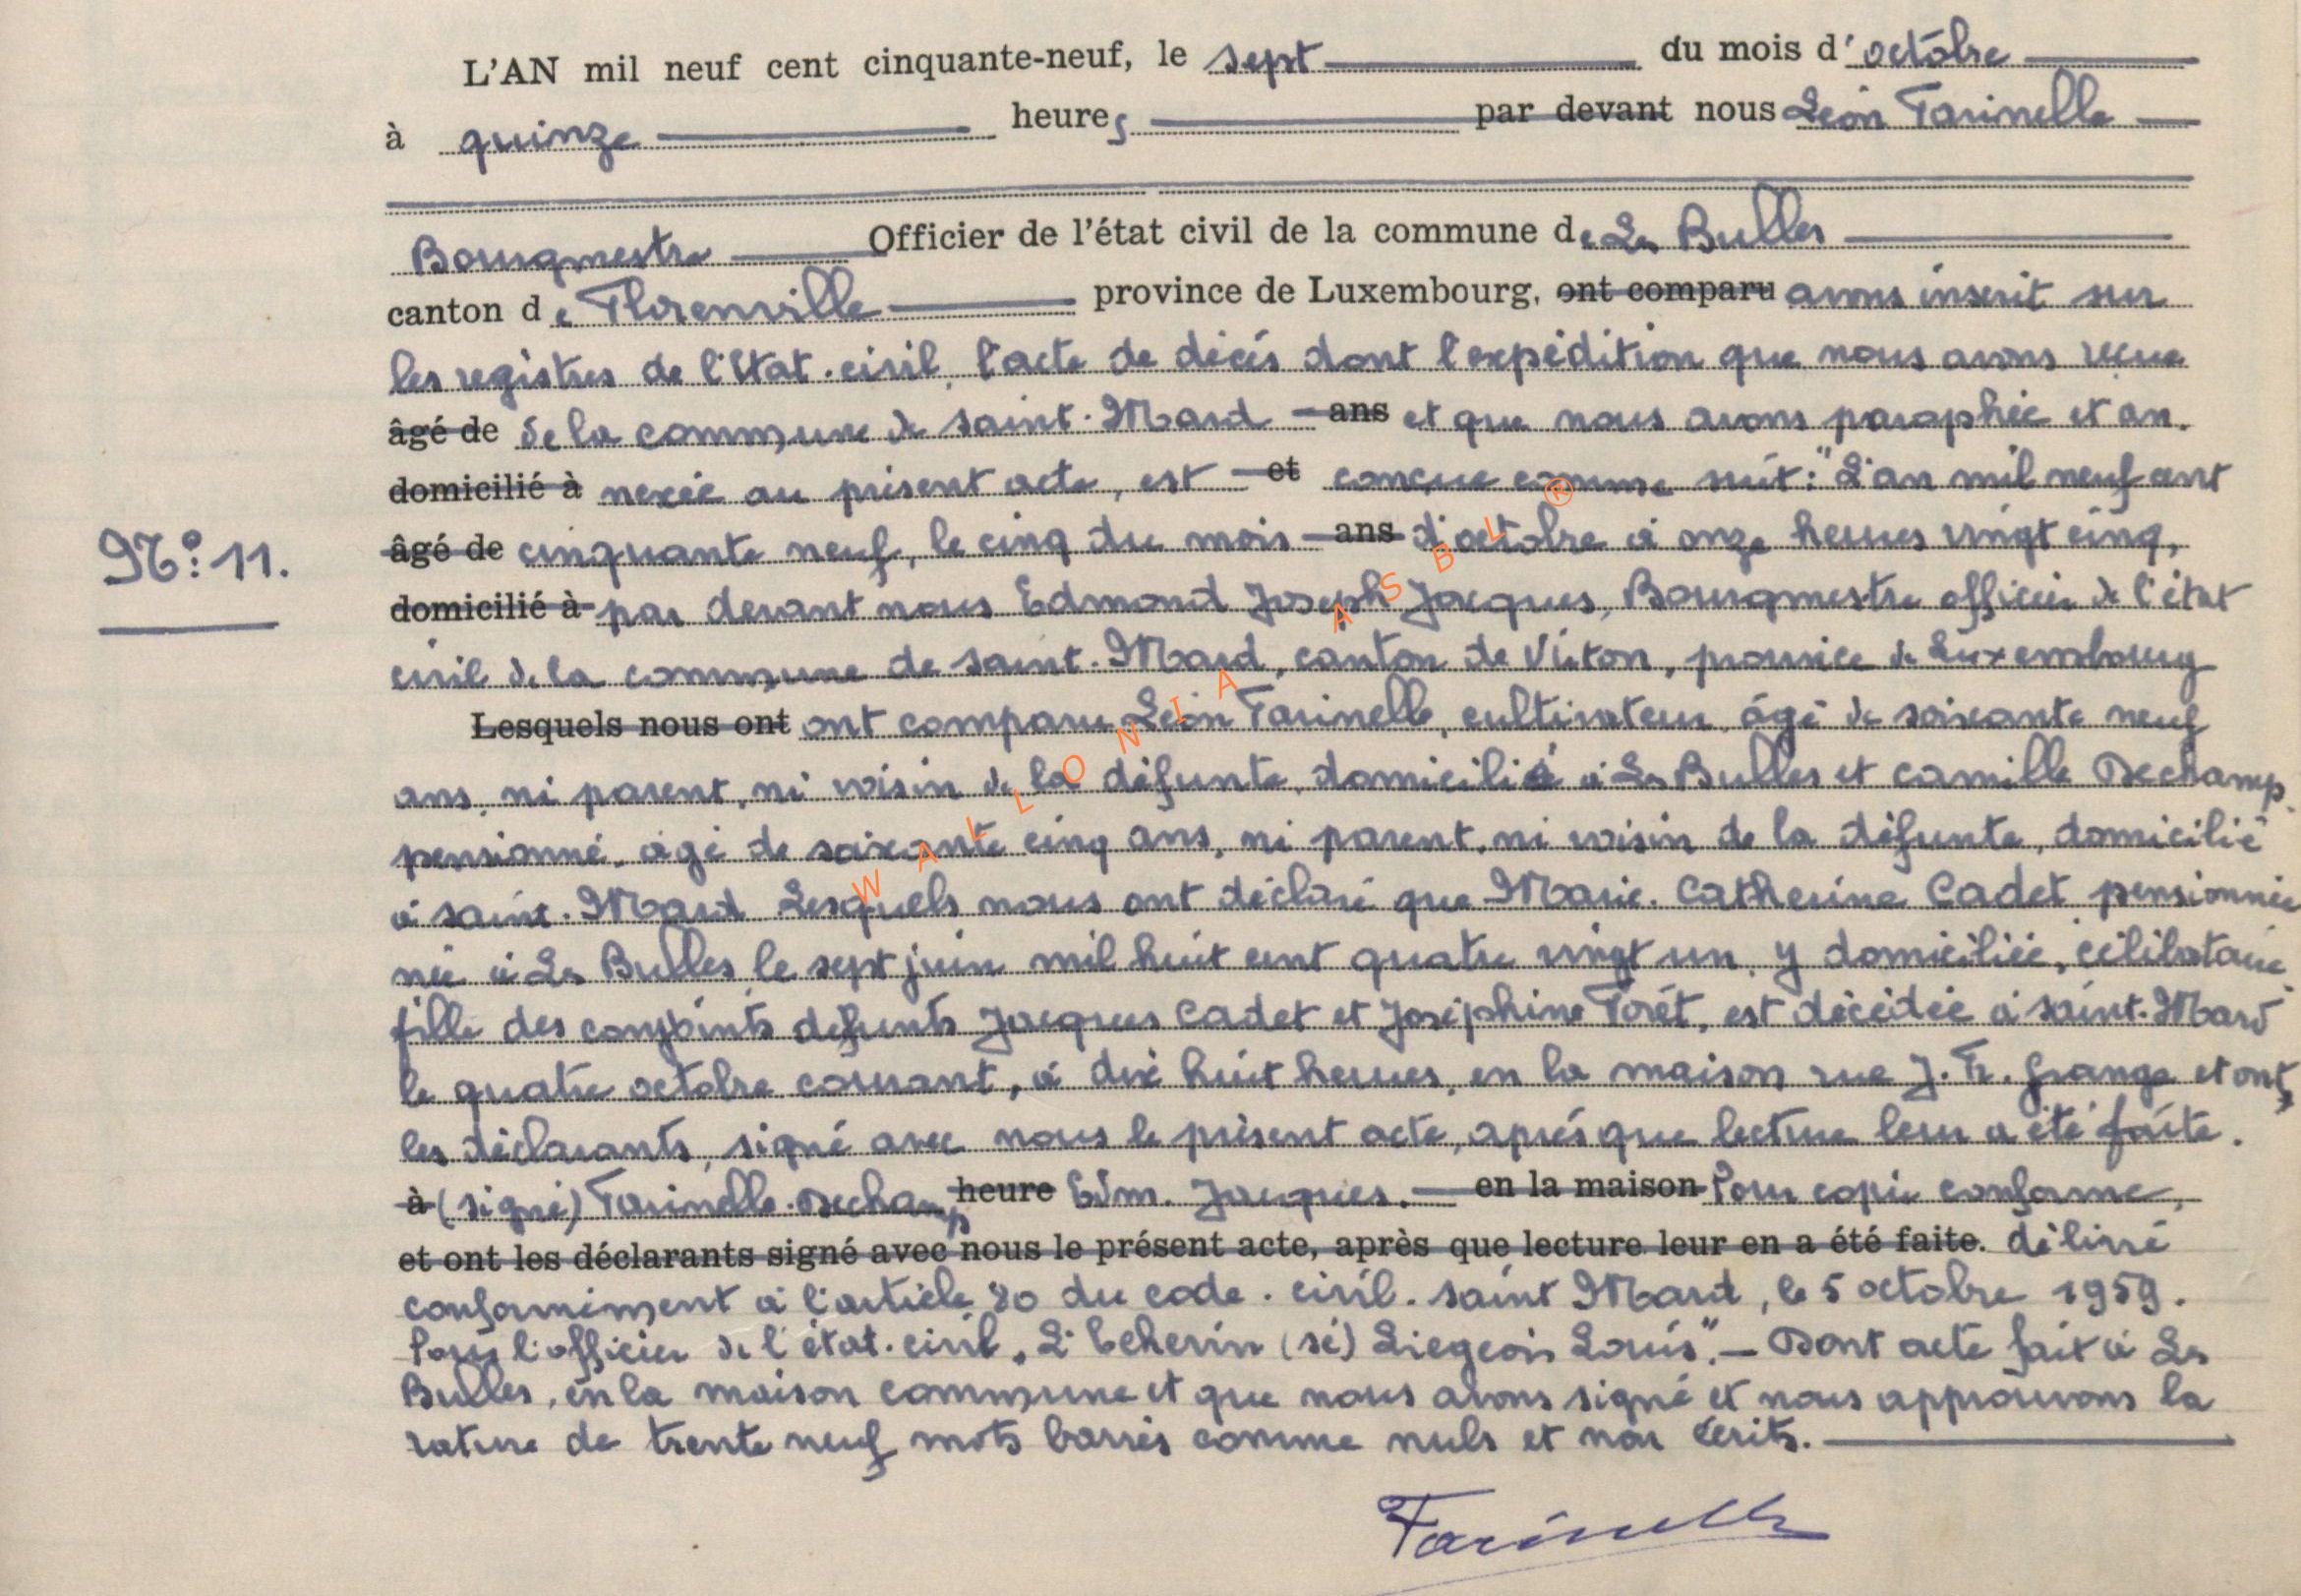 L'AN mil neuf cent cinquante-neuf, le sept du mois d'octobre
à quinze heures par devant nous Léon Farinelle
Bourgmestre Officier de l'état civil de la commune de Les Bulles
canton de Florenville province de Luxembourg, ont comparu avons inscrit sur
les registres de l'Etat-civil, l'acte de décès dont l'expédition que nous avons reçue
âgé de de la commune de Saint-Mard ans et que nous avons paraphée et an-
domicilié à nexée au présent acte, est et conçue comme suit: "L'an mil neuf cent
N°: 11.
âgé de cinquante neuf, le cinq du mois ans d'octobre à onze heures vingt cinq,
domicilié à par devant nous Edmond Joseph Jacques, Bourgmestre officier de l'état
civil de la commune de Saint-Mard, canton de Virton, province de Luxembourg
Lesquels nous ont ont comparu Léon Farinelle, cultivateur, âgé de soixante neuf
ans, ni parent, ni voisin de la défunte, domicilié à Les Bulles et Camille Dechamp,
pensionné, âgé de soixante cinq ans, ni parent, ni voisin de la défunte, domicilié
à Saint-Mard Lesquels nous ont déclaré que Marie-Catherine Cadet pensionnée
née à Les Bulles le sept juin mil huit cent quatre vingt un, y domiciliée, célibataire,
fille des conjoints défunts Jacques Cadet et Joséphine Forêt, est décédée à Saint-Mard
le quatre octobre courant, à dix huit heures, en la maison rue J. Fr. Grange et ont,
les déclarants, signé avec nous le présent acte, après que lecture leur a été faite.
à (signé) Farinelle-Dechamp heure Edm. Jacques. en la maison Pour copie conforme,
et ont les déclarants signé avec nous le présent acte, après que lecture leur en a été faite. délivré
conformément à l'article 80 du code-civil. Saint Mard, le 5 octobre 1959.
Pour l'officier de l'état-civil, L'Echevin (sé) Liegeois Louis". Dont acte fait à Les
Bulles, en la maison commune et que nous avons signé et nous approuvons la
rature de trente neuf mots barrés comme nuls et non écrits.
Farinelle
WALLONIA ASBL ®